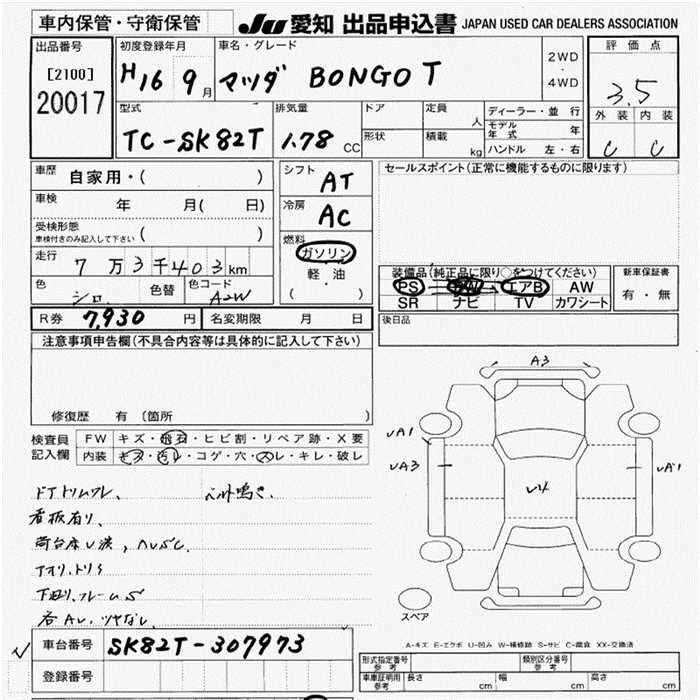 車内保管・守衛保管
JU 愛知 出品申込書 JAPAN USED CAR DEALERS ASSOCIATION
出品番号
[2100]
20017
初度登録年月
H16 9月
車名・グレード
マツダ BONGO T
2WD
・
4WD
評価点
3.5
外装 内装
C C
型式
TC-SK82T
排気量
1.78 CC
ドア
定員 人
形状
積載 kg
ディーラー・並行
モデル年式 年
ハンドル 左・右
車歴 自家用・( )
車検 年 月( 日)
受検形態
車検付きのみ記入して下さい ( )
走行 7万3千403km
色 シロ 色替 色コード A2W
シフト AT
冷房 AC
燃料
ガソリン
・
軽油
( )
セールスポイント(正常に機能するものに限ります)
装備品(純正品に限り○をつけてください)
PS エアB AW
SR ナビ TV カワシート
新車保証書
有・無
R券 7,930 円 名変期限 月 日
後日品
注意事項申告欄(不具合内容等は具体的に記入して下さい)
修復歴 有 〔箇所 〕
検査員記入欄
FW キズ・飛石・ヒビ割・リペア跡・X要
内装 キズ・汚レ・コゲ・穴・スレ・キレ・破レ
ドアトリムワレ、 ベルト鳴き、
看板有り、
A3
UA1
UA3
U4
UA1
スペア
A-キズ E-エクボ U-凹み W-補修跡 S-サビ C-腐食 XX-交換済
車台番号 SK82T-307973
登録番号
形式指定番号 参考
類別区分番号 参考
車庫証明用 参考 長さ cm 幅 cm 高さ cm